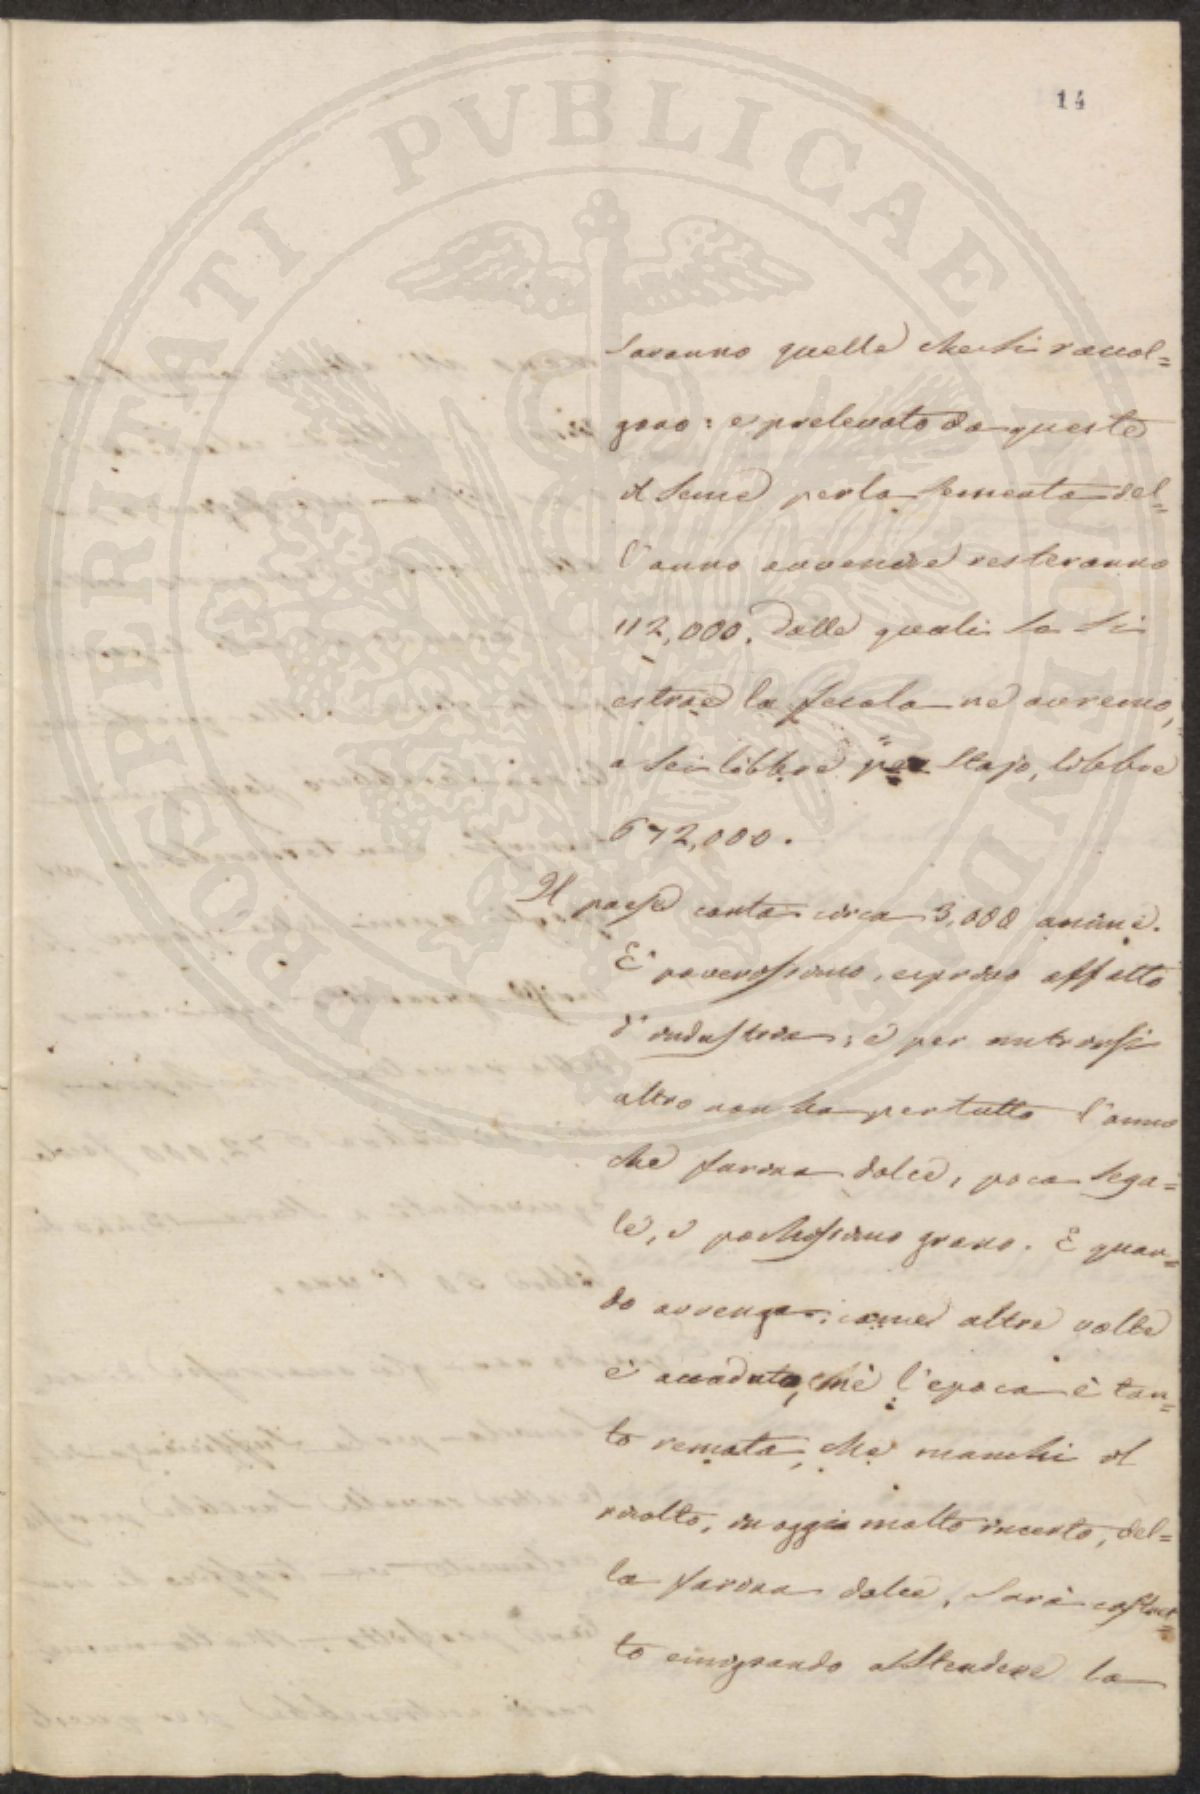 14
PROSPERITATI PVBLICAE AVGENDAE
saranno quelle che si raccol=
gono: e prelevato da queste
il seme per la sementa del=
l'anno avvenire resteranno
112,000. Dalle quali se si
estrae la fecola ne avremo,
a sei libbre per Stajo, libbre
672,000.
Il paese conta circa 3,000 anime.
E' poverissimo, e privo affatto
d'industria; e per nutrirsi
altro non ha per tutto l'anno
che farina dolce, poca sega=
le, e pochissimo grano. E quan=
do avvenga, come altre volte
è accaduto, nè l'epoca è tan=
to remota, che manchi il
ricolto, in oggi molto incerto, del=
la farina dolce, sarà costret=
to emigrando a stendere la